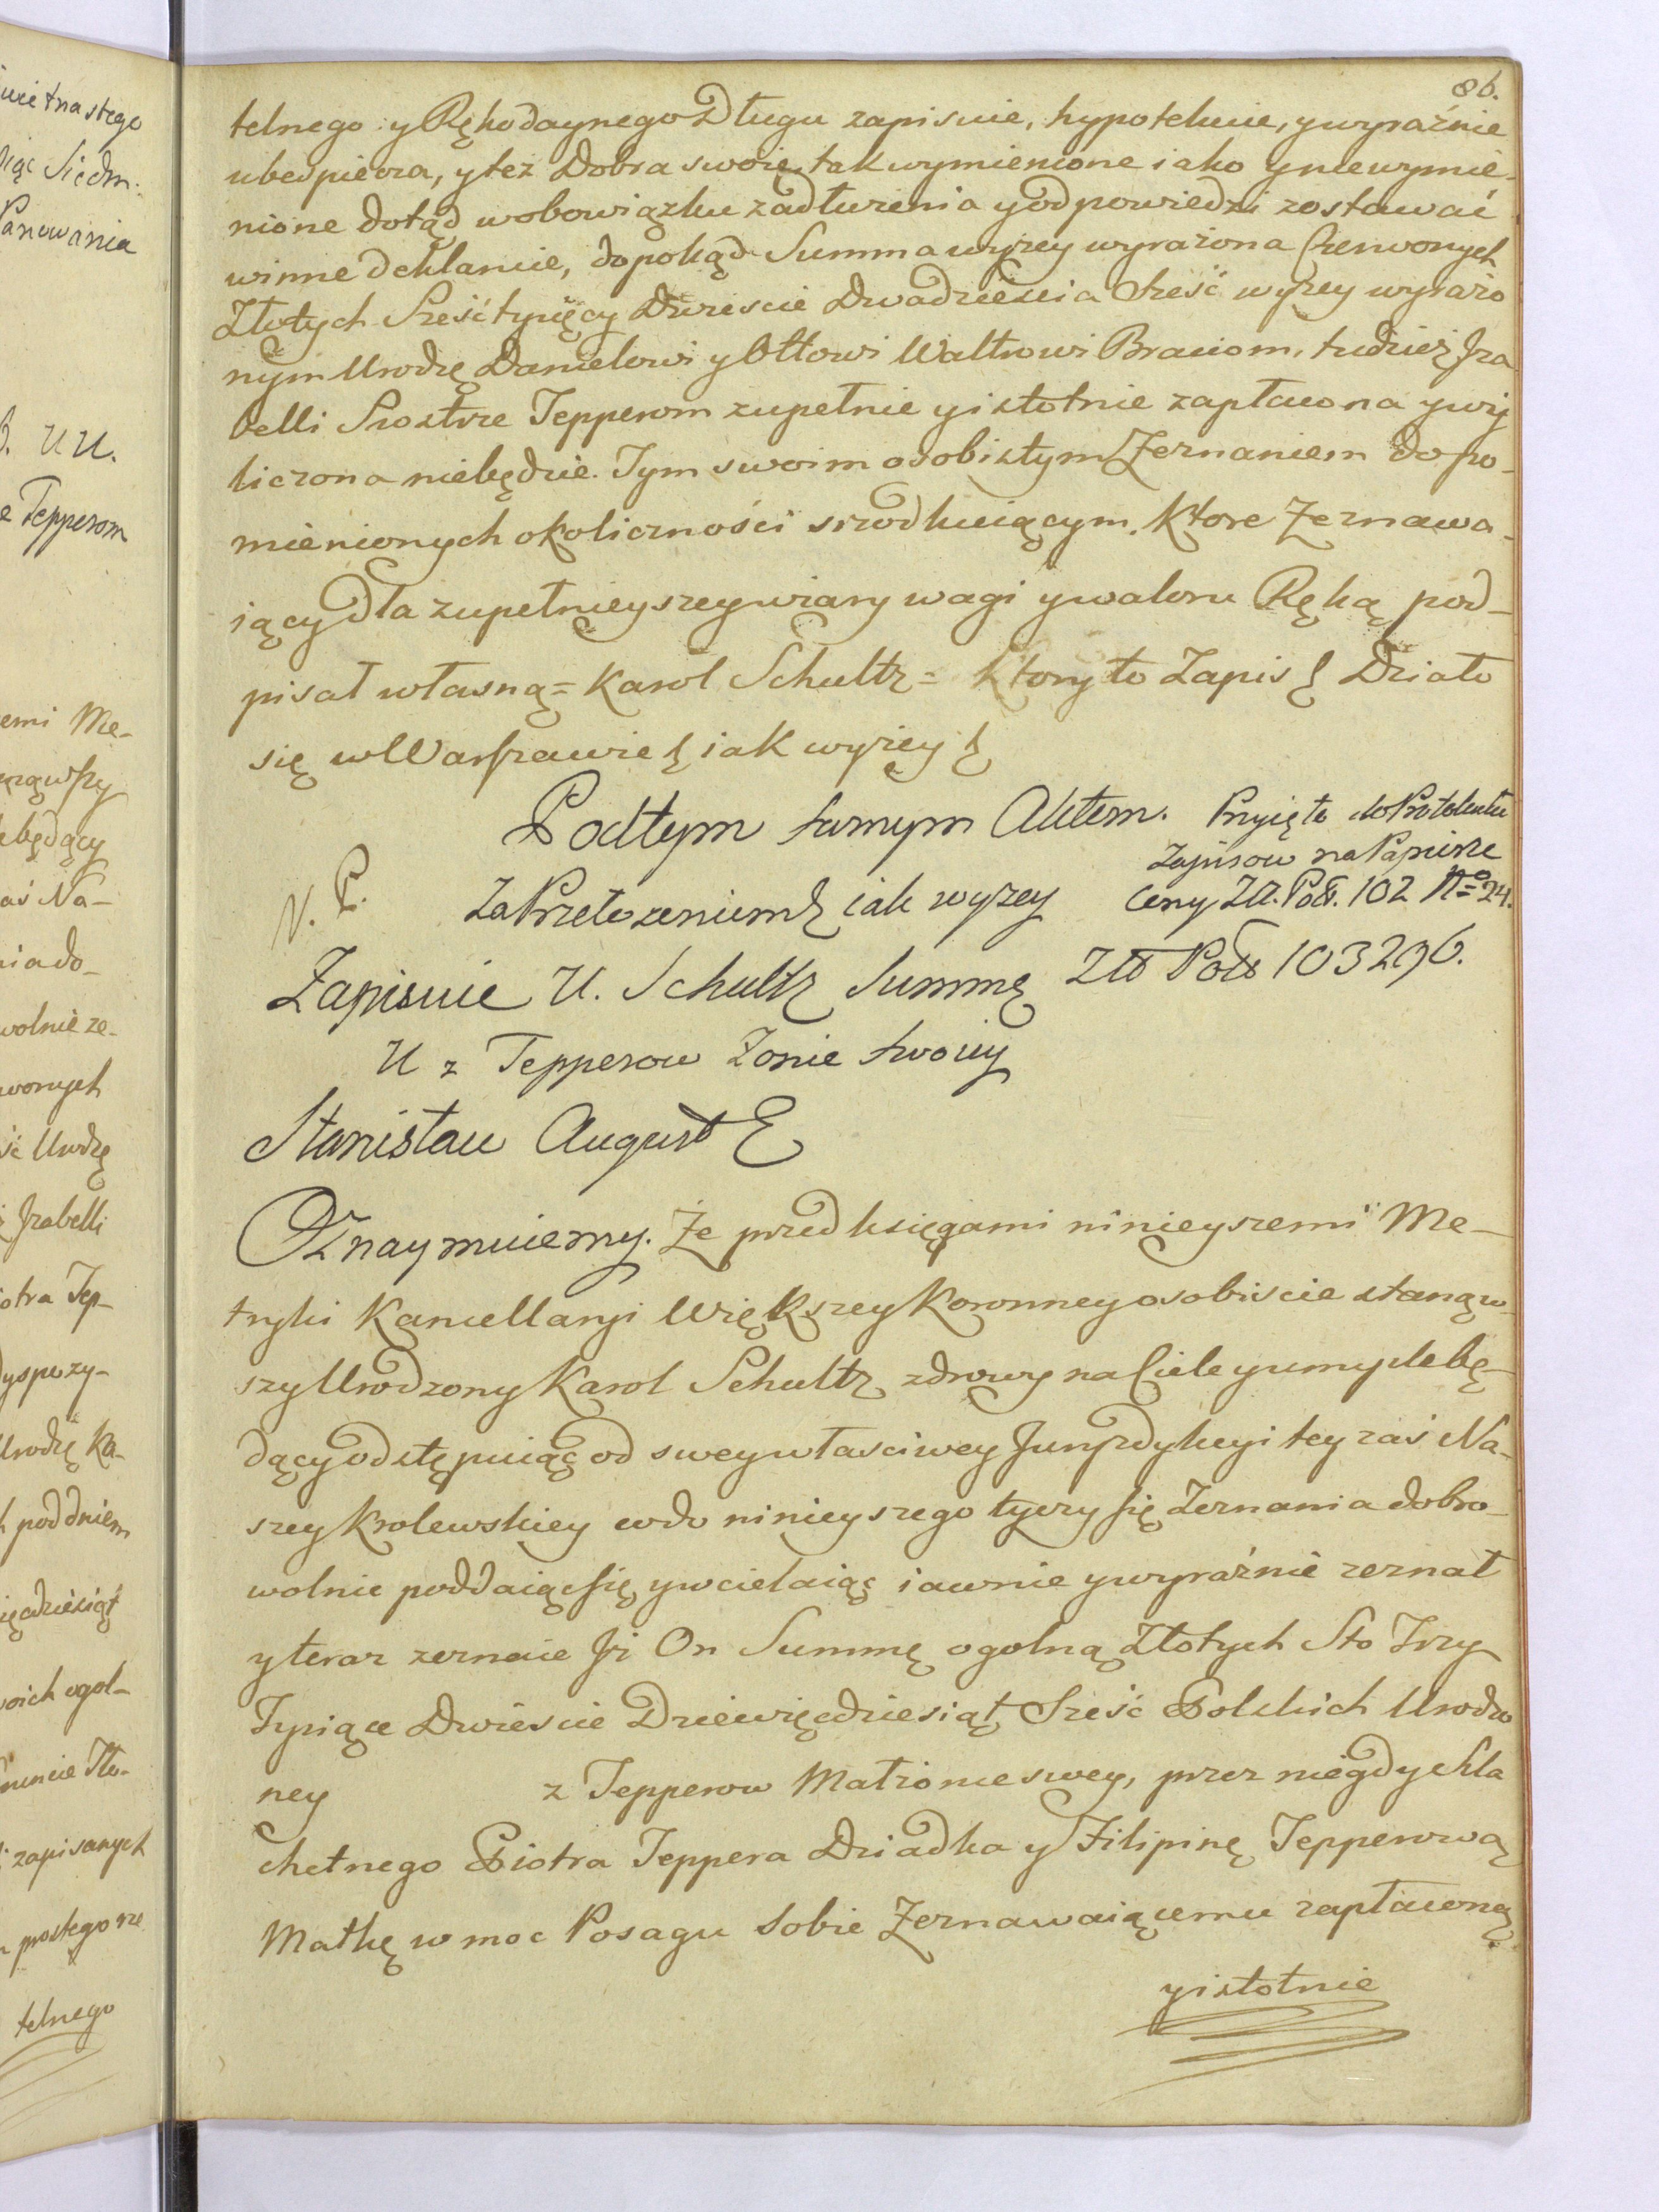 86.
telnego y Rękodaynego Długu zapisuie, hypotekuie, y wyraźnie
ubespiecza, y też Dobra swoie, tak wymienione iako y niewymie-
nione dotąd w obowiązku zadłużenia y odpowiedzi zostawać
winne deklaruie, dopokąd Summa wyżey wyrażona Czerwonych
Złotych Sześć tysięcy Dwieście Dwadzieścia Sześć wyżey wyrażo
nym Urodzę Danielowi y Ottowi Waltrowi Braciom, tudzież Iza
belli Siostrze Tepperom zupełnie y istotnie zapłacona y wy
liczona niebędzie. Tym swoim osobistym Zeznaniem do po-
mienionych okoliczności srzodkuiącym. Ktore Zeznawa-
iący dla zupełnieyszey wiary wagi y waloru Ręką pod-
pisał własną = Karol Schultz = Ktory to Zapis ʃ Działo
się w Warszawie ʃ iak wyżey ʃ
Podtym samym Aktem. Przyięte do Protokułu
Zapisow na Papierze
N. P. Za Przełożeniem ʃ iak wyżey ceny Zł. Pol. 102 No 24.
Zapisuie U. Schultz Summę Zło Pols 103296.
U z Tepperow Żonie swoiey
Stanisław August
Oznaymuiemy. Że przed księgami ninieyszemi Me-
tryki Kancellaryi Większey Koronney osobiscie stanąw-
szy Urodzony Karol Schultz zdrowy na Ciele y umysle bę-
dący odstępuiąc od swey własciwey Juryzdykcyi tey zaś Na-
szey Krolewskiey co do ninieyszego tyczy się Zeznania dobro-
wolnie poddaiąc się y wcielaiąc iawnie y wyraźnie zeznał
y teraz zeznaie Iż On Summę ogolną Złotych Sto Trzy
Tysiące Dwieście Dziewięćdziesiąt Sześć Polskich Urodzo
ney z Tepperow Małżonce swey, przez niegdy Szla
chetnego Piotra Teppera Dziadka y Filipinę Tepperową
Matkę w moc Posagu sobie Zeznawaiącemu zapłaconą
y istotnie